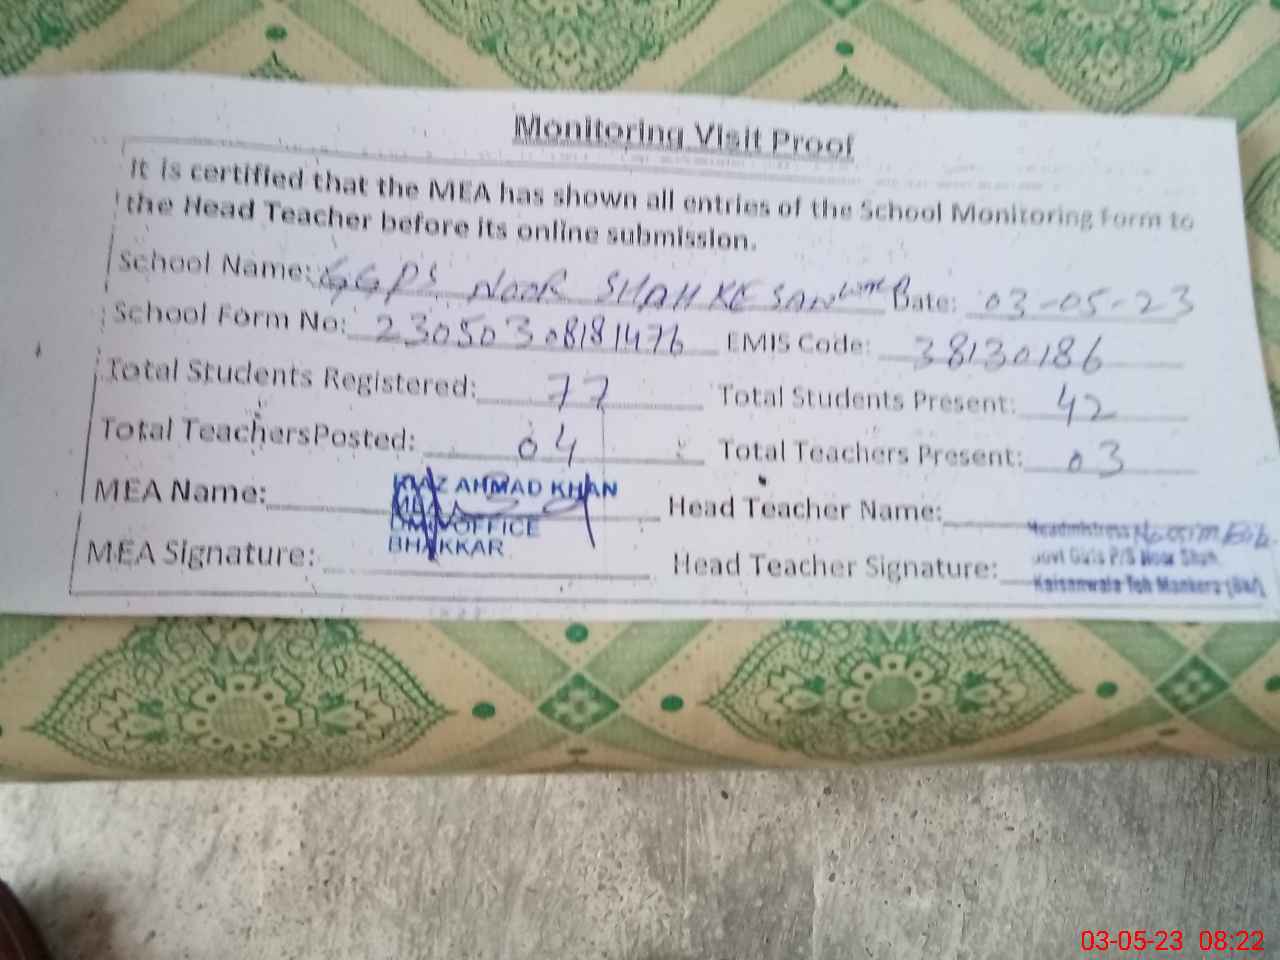 Monitoring Visit Proof
It is certified that the MEA has shown all entries of the School Monitoring Form to
the Head Teacher before its online submission.
School Name: GGPS NOOR SHAH KE SAN Date: 03-05-23
School Form No: 23050308181476 EMIS Code: 38130186
Total Students Registered: 77 Total Students Present: 42
Total Teachers Posted: 04 Total Teachers Present: 03
MEA Name: AHMAD KHAN Head Teacher Name:
OFFICE
BHAKKAR
Headmistress
Govt Girls P/S Noor Shah
Kaisanwala Teh Mankera
MEA Signature: Head Teacher Signature:
03-05-23 08:22